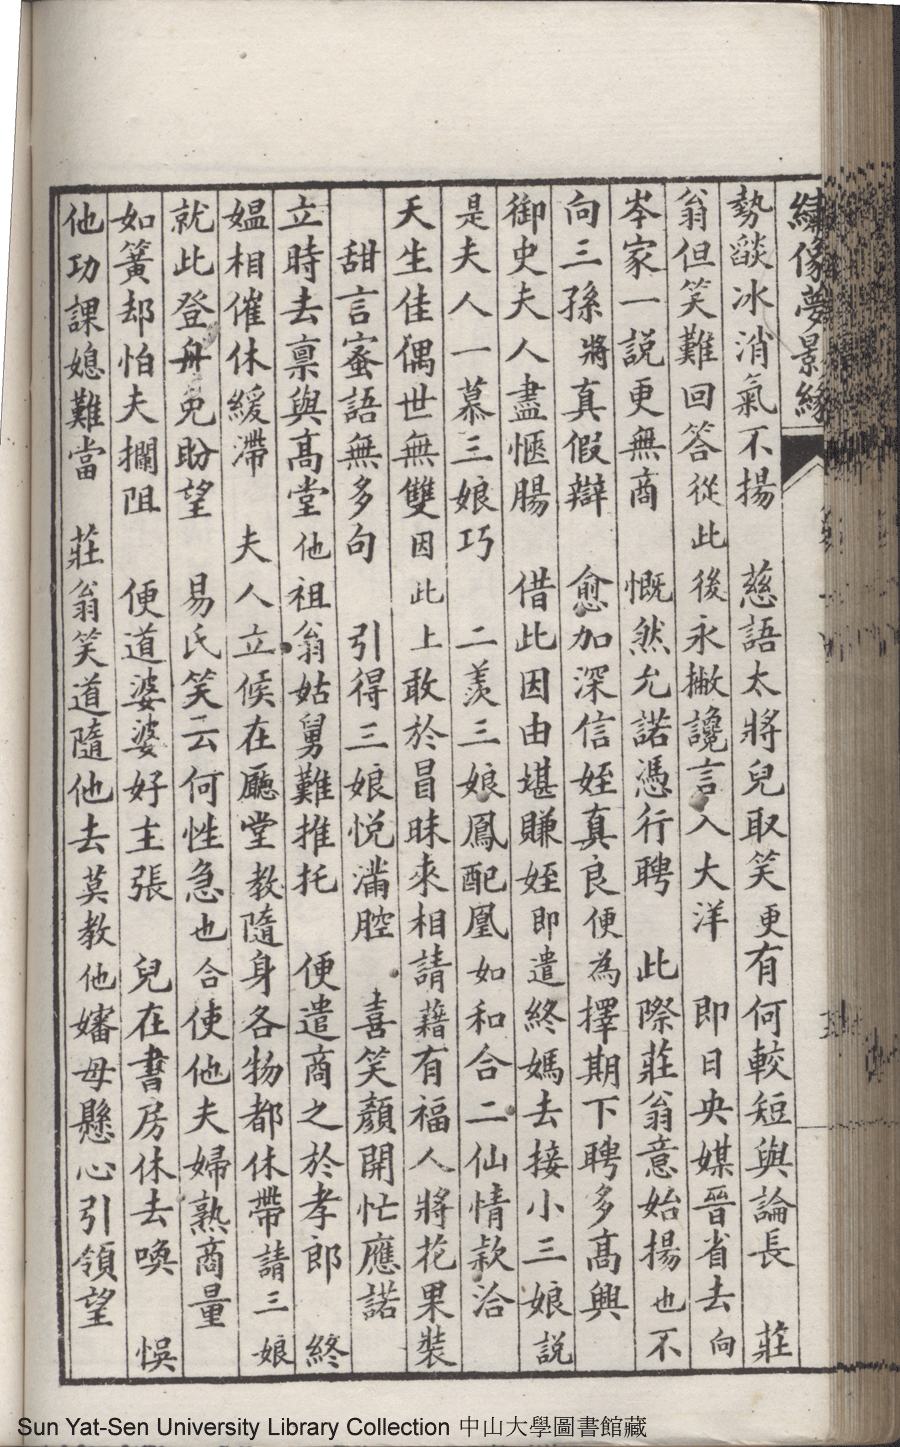 繡像夢景緣
勢燄冰消氣不揚　慈語太將兒取笑更有何較短與論長　莊
翁但笑難回答從此後永撇讒言入大洋　即日央媒晉省去向
岑家一說更無商　慨然允諾憑行聘　此際莊翁意始揚也不
向三孫將真假辯　愈加深信姪真良便為擇期下聘多高興
御史夫人盡愜腸　借此因由堪賺姪即遣終媽去接小三娘說
是夫人一慕三娘巧　二羨三娘鳳配凰如和合二仙情款洽
天生佳偶世無雙因此上敢於冒昧來相請藉有福人將花果裝
甜言蜜語無多句　引得三娘悅滿腔　喜笑顏開忙應諾
立時去稟與高堂他祖翁姑舅難推托　便遣商之於孝郎　終
媪相催休緩滯　夫人立候在廳堂教隨身各物都休帶請三娘
就此登舟免盼望　易氏笑云何性急也合使他夫婦熟商量
如簧却怕夫攔阻　便道婆婆好主張　兒在書房休去喚　悞
他功課媳難當　莊翁笑道隨他去莫教他嬸母懸心引領望
Sun Yat-Sen University Library Collection 中山大學圖書館藏